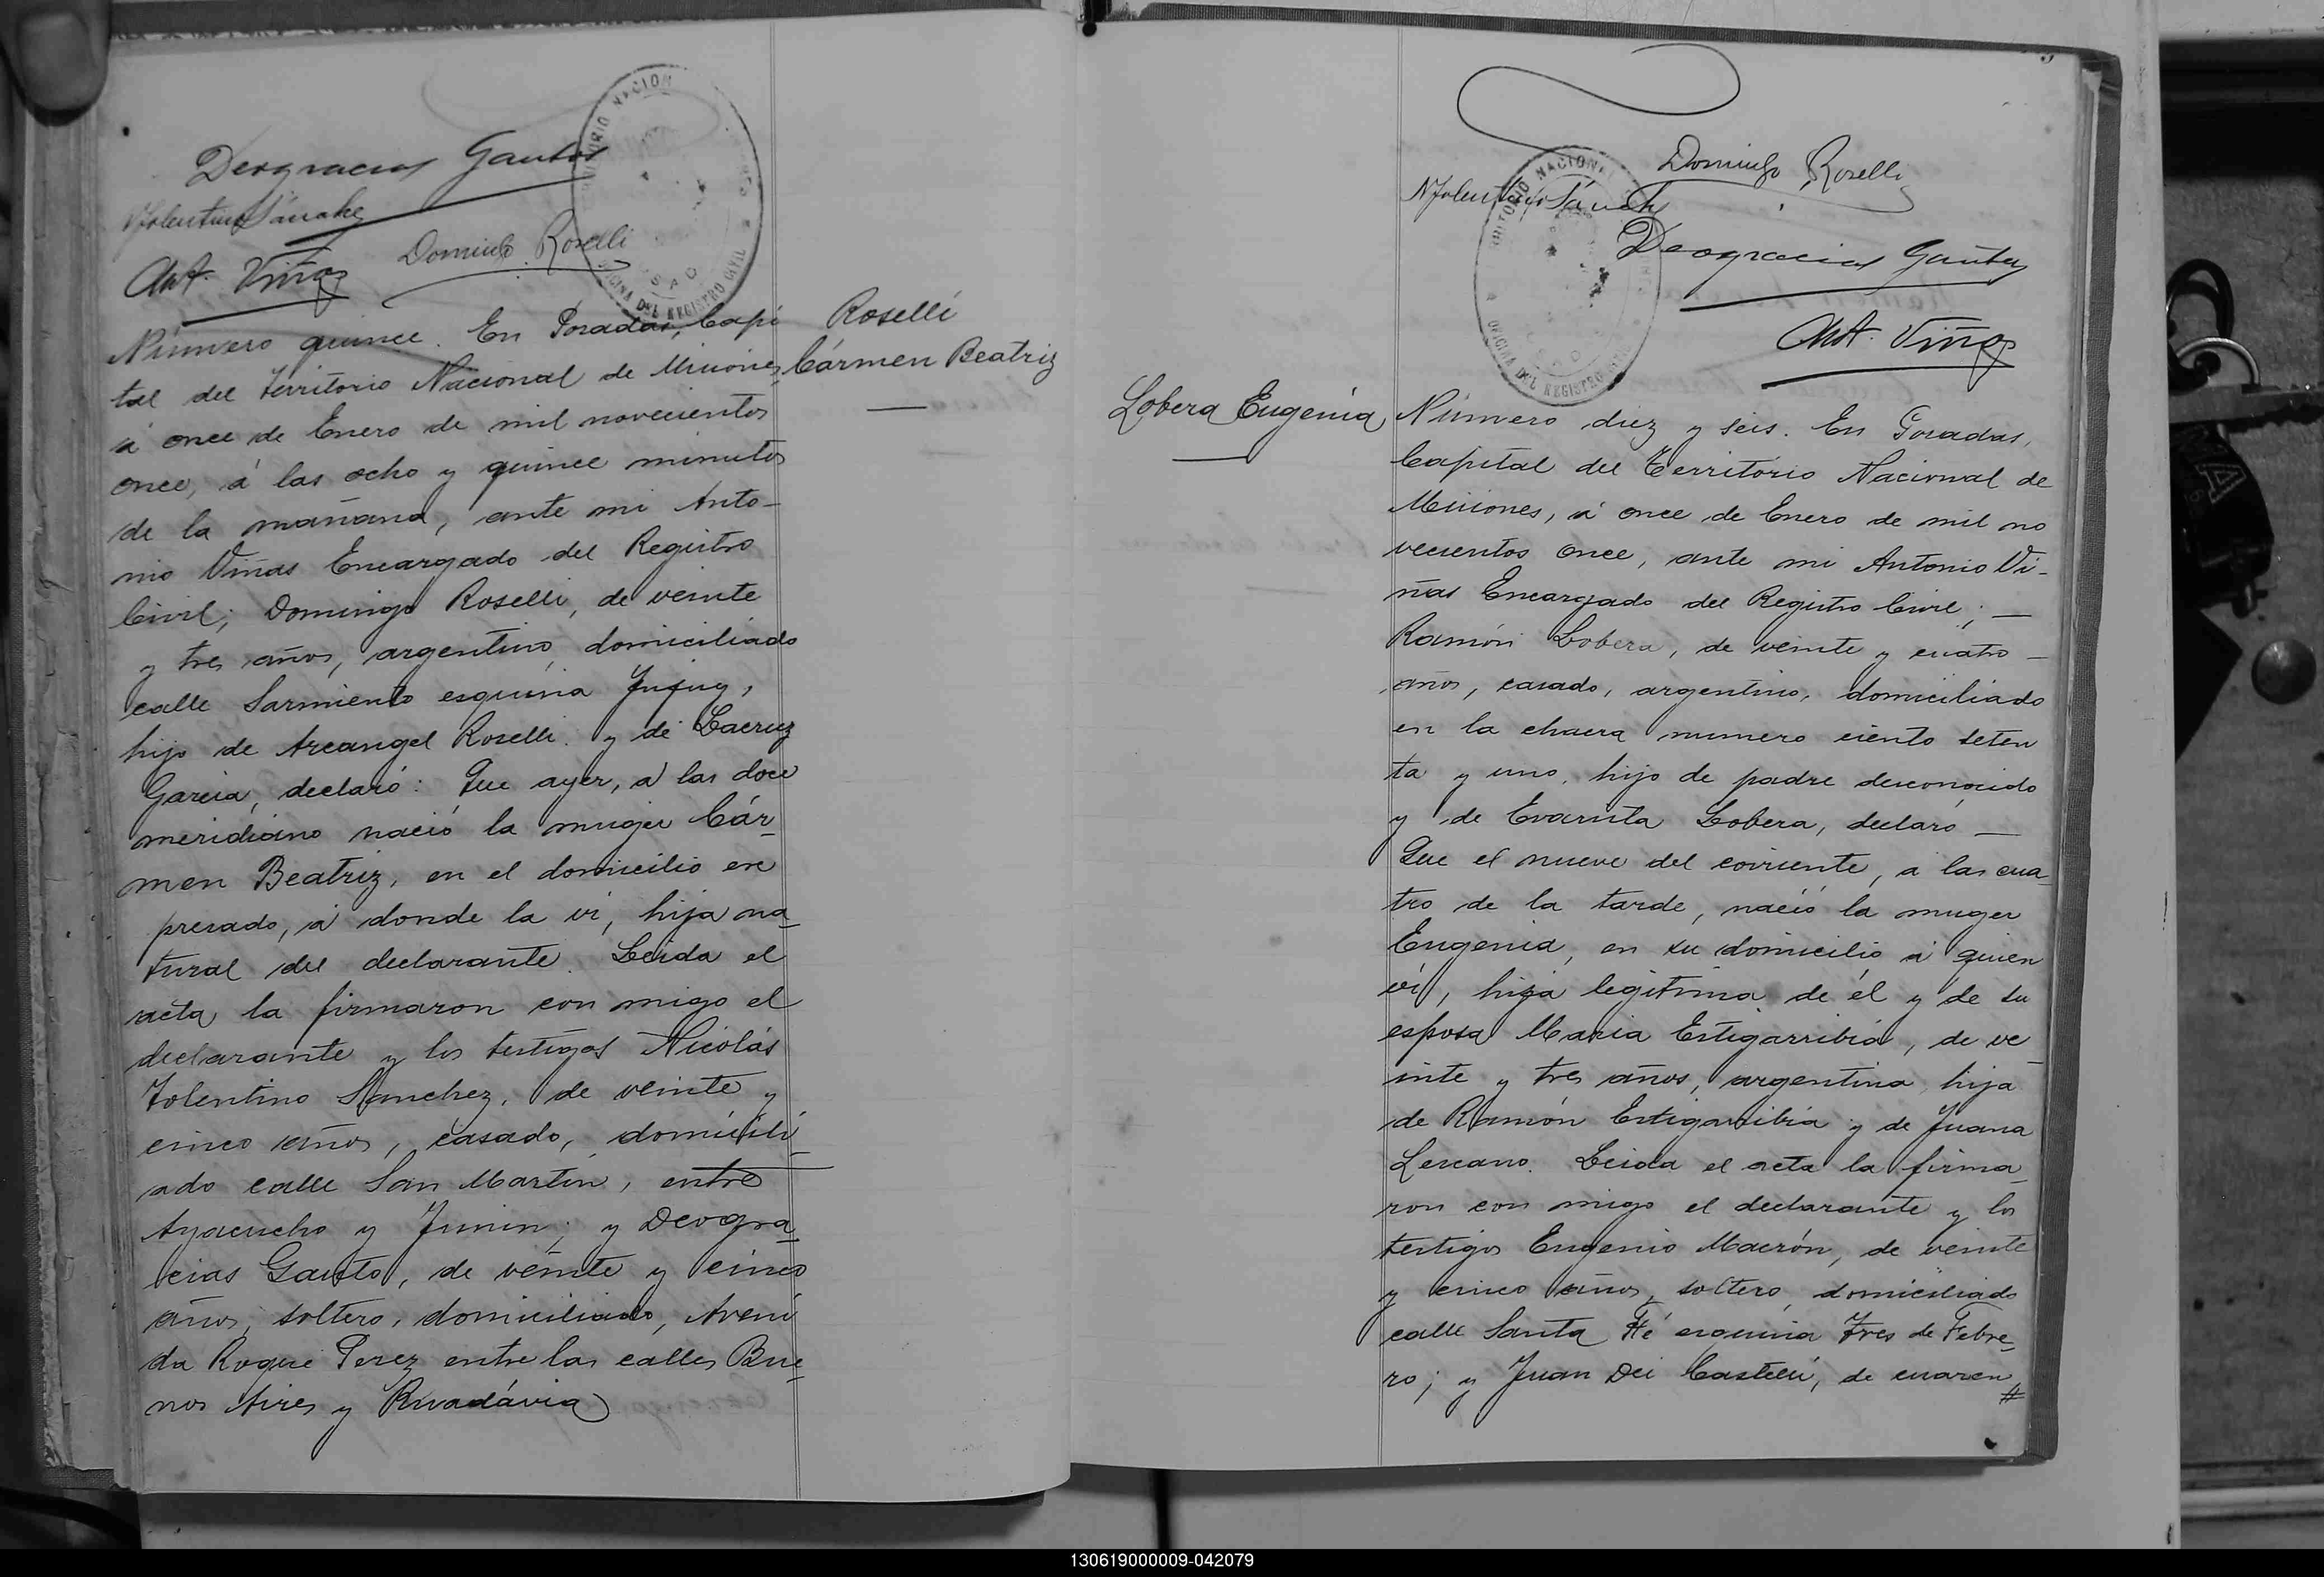 TERRITORIO NACION
OFICINA DEL REGISTRO CIVIL
Deogracias Gauto
NTolentino Sánchez
Domingo Roselli
Ant. Viñas
Roselli
Cármen Beatriz
Número quince. En Posadas, Capi
tal del territorio Nacional de Misiones,
á once de Enero de mil novecientos
once, á las ocho y quince minutos
de la mañana, ante mi Anto-
nio Viñas Encargado del Registro
Civil; Domingo Roselli, de veinte
y tres años, argentino, domiciliado
calle Sarmiento esquina Jujuy,
hijo de Arcangel Roselli y de Lacruz
Garcia, declaró: Que ayer, a las doce
meridiano nació la muger Cár-
men Beatriz, en el domicilio ex
presado, á donde la vi, hija na-
tural del declarante. Leida el
acta la firmaron con migo el
declarante y los testigos Nicolás
Tolentino Sanchez, de veinte y
cinco años, casado, domicili-
ado calle San Martin, entre
Ayacucho y Junin; y Deogra-
cias Gauto, de veinte y cinco
años, soltero, domiciliado, Aveni
da Roque Perez entre las calles Bue-
nos Aires y Rivadávia
TERRITORIO NACIONAL
OFICINA DEL REGISTRO
Domingo Roselli
NTolentino Sánchez
Deogracias Gauto
Ant. Viñas
Lobera Eugenia
Número diez y seis. En Posadas,
Capital del Territorio Nacional de
Misiones, á once de Enero de mil no
vecientos once, ante mi Antonio Vi-
ñas Encargado del Registro Civil; —
Ramón Lobera, de veinte y cuatro —
años, casado, argentino, domiciliado
en la chacra numero ciento seten
ta y uno, hijo de padre desconocido
y de Evarista Lobera, declaró —
Que el nueve del corriente, a las cua-
tro de la tarde, nació la muger
Eugenia, en su domicilio á quien
ví, hija legitima de él y de su
esposa Maria Estigarribia, de ve-
inte y tres años, argentina, hija
de Ramón Estigarribia y de Juana
Lescano. Leida el acta la firma-
ron con migo el declarante y los
testigos Eugenio Macrón, de veinte
y cinco años, soltero, domiciliado
calle Santa Fé esquina Tres de Febre-
ro; y Juan Dei Castelli, de cuaren
#
130619000009-042079